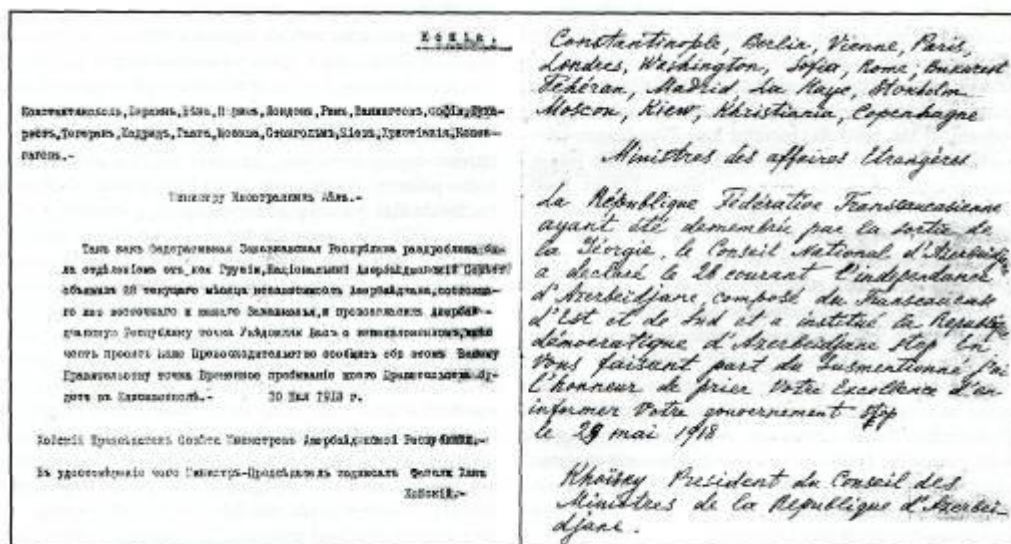 Копія.
Константинополь, Берлинъ, Вѣна, Парижъ, Лондонъ, Римъ, Вашингтонъ, Софія, Буха-
рестъ, Тегеранъ, Мадридъ, Гаага, Москва, Стокгольмъ, Кіевъ, Христіанія, Копен-
гагенъ.-
Министру Иностранныхъ Дѣлъ.-
Такъ какъ Федеративная Закавказская Республика раздроблена бы-
ла отдѣленіемъ отъ нея Грузіи, Національный Азербайджанскій Совѣтъ
объявилъ 28 текущаго мѣсяца независимость Азербайджана, состояща-
го изъ восточнаго и южнаго Закавказья, и провозгласилъ Азербай-
джанскую Республику точка Увѣдомляя Васъ о вышеизложенномъ, имѣю
честь просить Ваше Превосходительство сообщить объ этомъ Вашему
Правительству точка Временное пребываніе моего Правительства бу-
детъ въ Елисаветполѣ.- 30 Мая 1918 г.
Хойскій Предсѣдатель Совѣта Министровъ Азербайджанской Республики.-
Въ удостовѣреніе чего Министръ-Предсѣдатель подписалъ Фатали Ханъ
Хойскій.-
Constantinople, Berlin, Vienne, Paris,
Londres, Washington, Sofia, Rome, Bukarest
Téhéran, Madrid, La Haye, Stokholm,
Moscou, Kiew, Khristiania, Copenhague
Ministres des affaires Etrangères.
La République Fédérative Transcaucasienne
ayant été demembrée par la sortie de
la Géorgie, le Conseil National d'Azerbeidjan
a declaré le 28 courant l'independance
d'Azerbeidjane, composé du Transcaucase
d'Est et de Sud et a institué la Republique
démocratique d'Azerbeidjane stop En
vous faisant part du susmentionné j'ai
l'honneur de prier Votre Excellence d'en
informer Votre gouvernement stop
le 29 mai 1918
Khoïsky President du Conseil des
Ministres de la République d'Azerbei-
djane.